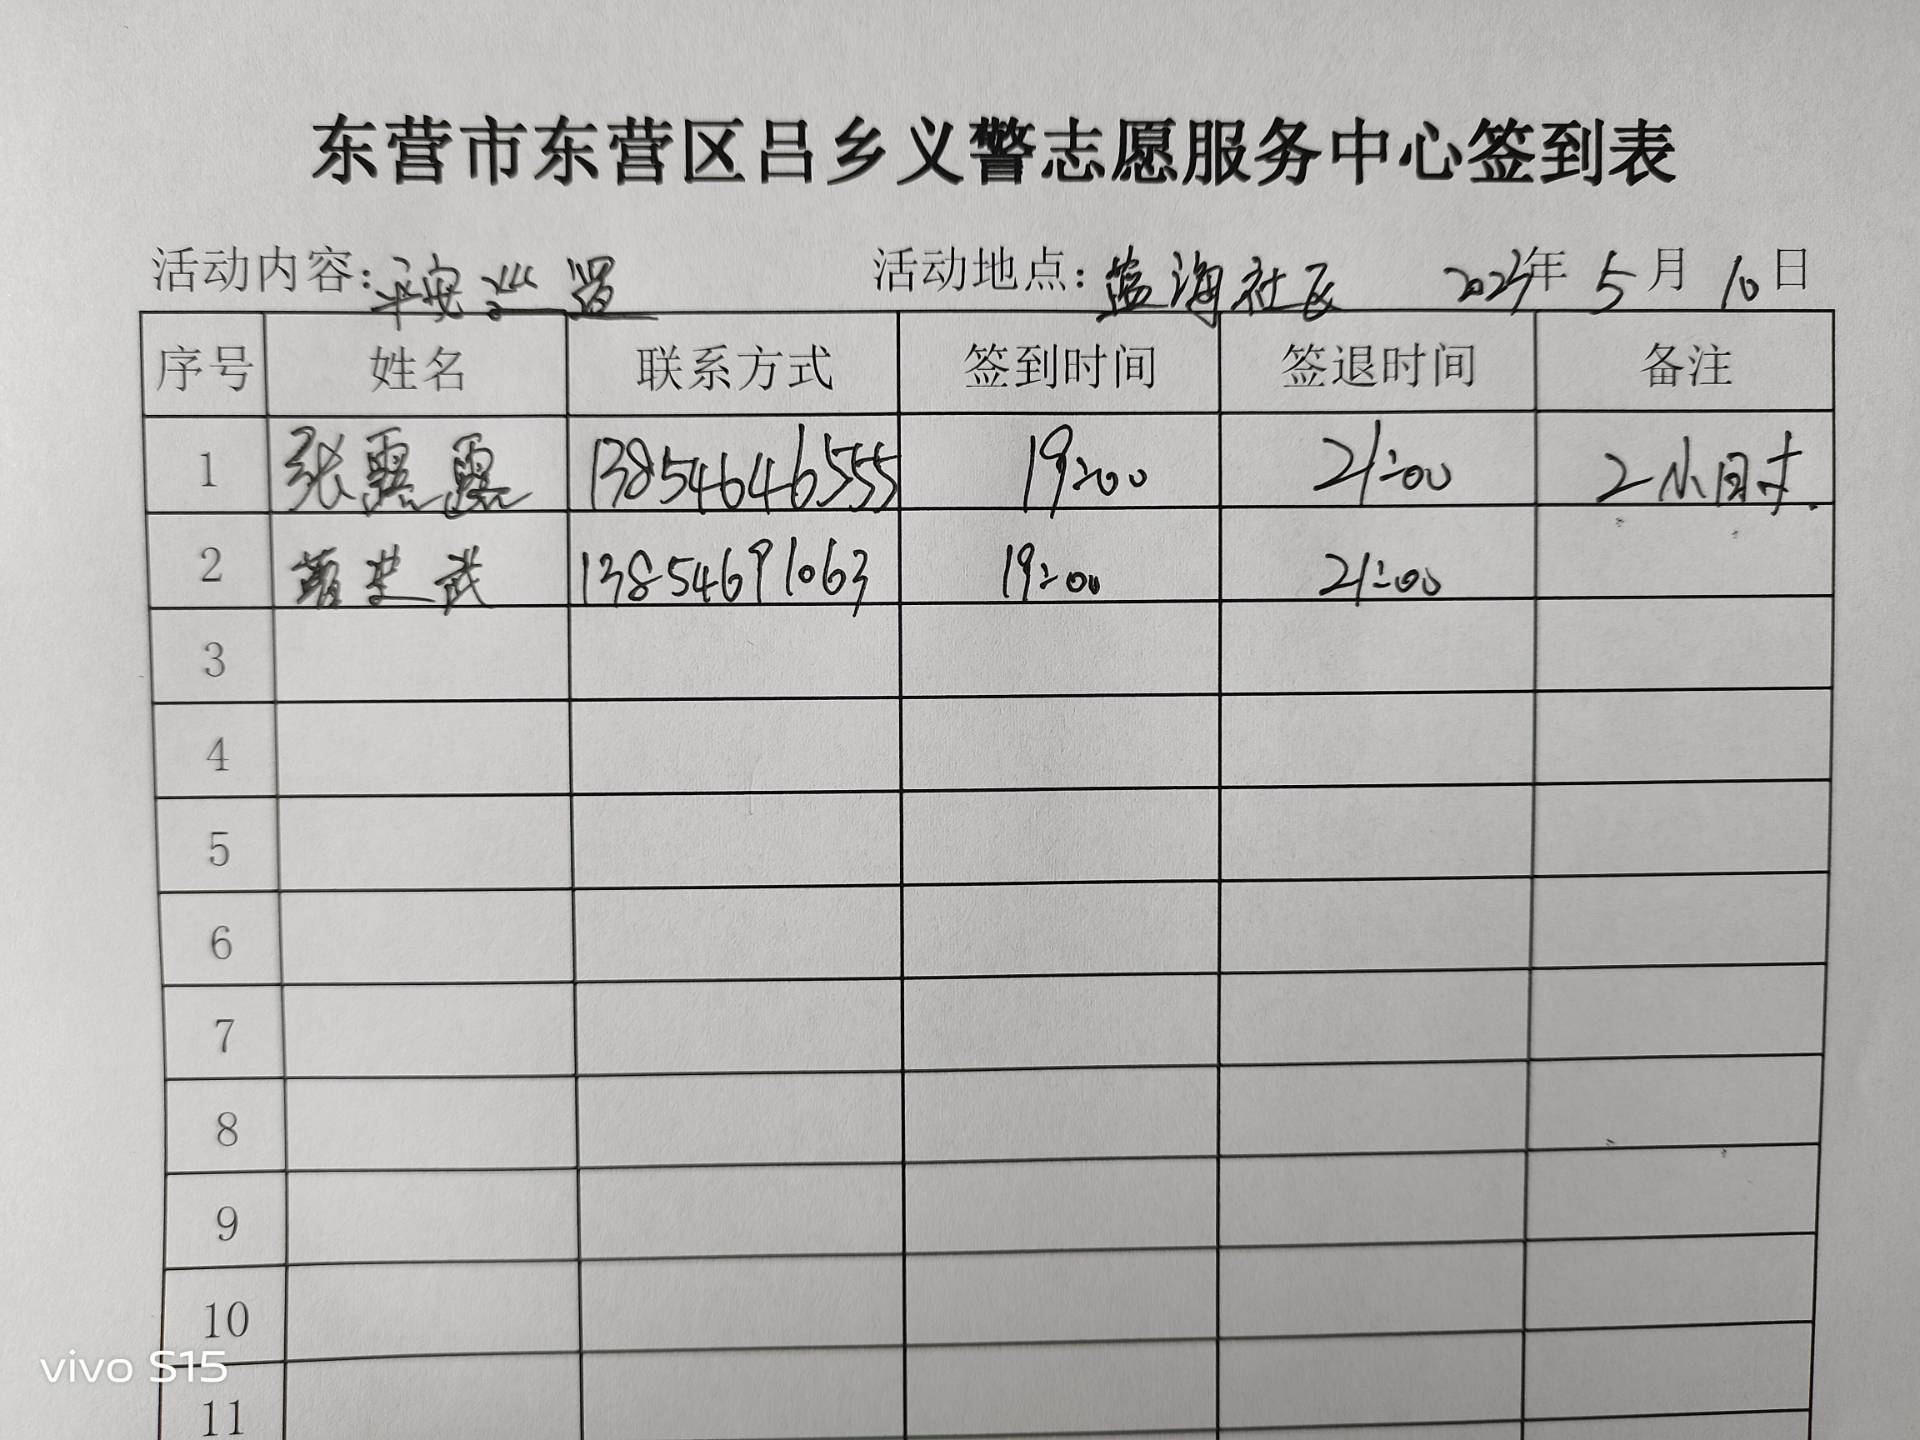 东营市东营区吕乡义警志愿服务中心签到表
活动内容：平安巡 活动地点：蓝海社区 2023年 5 月 10 日
序号 姓名 联系方式 签到时间 签退时间 备注
1 张露露 13854646555 19:00 21:00 2小时
2 武 13854691063 19:00 21:00
3
4
5
6
7
8
9
10
vivo S15
11